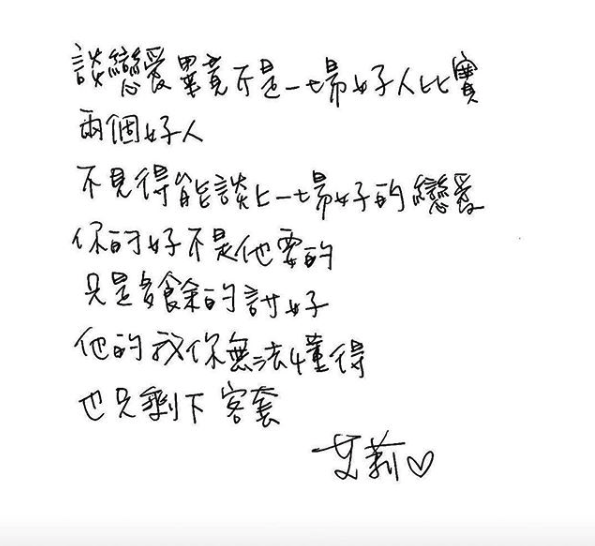 談戀愛畢竟不是一場好人比賽
兩個好人
不見得能談上一場好的戀愛
你的好不是他要的
只是多餘的討好
他的我你無法懂得
也只剩下客套
艾莉♡